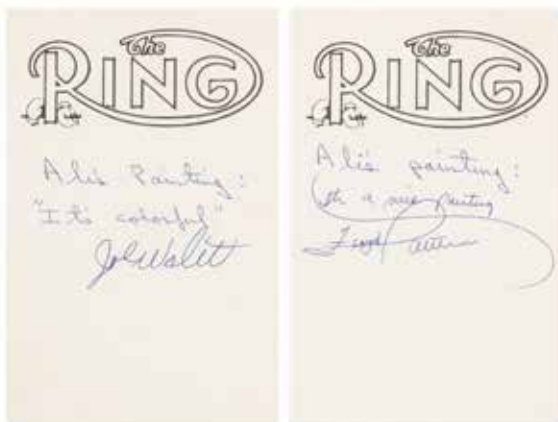 The
RING
Ali's Painting:
"It's colorful"
Joe Walcott
The
RING
Ali's painting:
a nice painting
Floyd Patterson